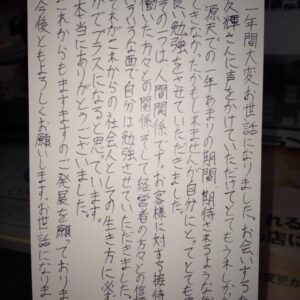 年間大変お世話になりました。お会いするた
友輝さんに声をかけていただけてとてもうれしか
源天での一年あまりの期間、期待されるような
しきなかったかもしれませんが自分にとってとても
良い勉強をさせていただきました。
その一つは人間関係です。お客様に対する接待
働いた方々との関係そして経営者の方々との信
いろいろな面で自分は勉強させていただきました。
てれがこれからの社会人としての生き方に必ず
がてプラスになると思っています。
本当にありがとうございました。
これからもますますのご発展を願っておりま
今後ともよろしくお願いします。お世話になりま